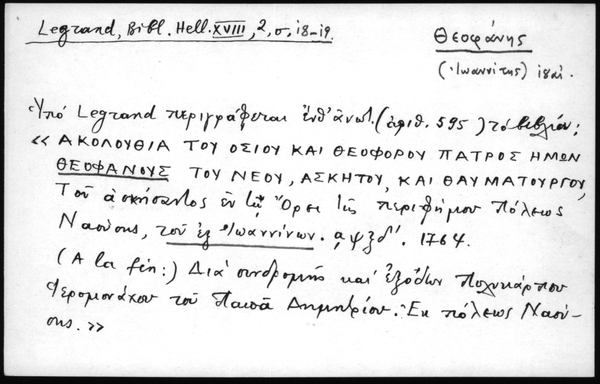 Legrand, Bibl. Hell. XVIII, 2, σ. 18-19.
Θεοφάνης
(Ἰωαννίτης) 18 αἰ.
Ὑπό Legrand περιγράφεται ἐνθ' ἀνωτ. (ἀριθ. 595) τό βιβλίον:
« ΑΚΟΛΟΥΘΙΑ ΤΟΥ ΟΣΙΟΥ ΚΑΙ ΘΕΟΦΟΡΟΥ ΠΑΤΡΟΣ ΗΜΩΝ
ΘΕΟΦΑΝΟΥΣ ΤΟΥ ΝΕΟΥ, ΑΣΚΗΤΟΥ, ΚΑΙ ΘΑΥΜΑΤΟΥΡΓΟΥ,
Τοῦ ἀσκήσαντος ἐν τῷ Ὄρει τῆς περιφήμου πόλεως
Ναούσης, τοῦ ἐξ Ἰωαννίνων. αψξδ'. 1764.
(A la fin:) Διά συνδρομῆς καί ἐξόδων Πολυκάρπου
Ἱερομονάχου τοῦ Παπᾶ Δημητρίου. Ἐκ πόλεως Ναού-
σης. »